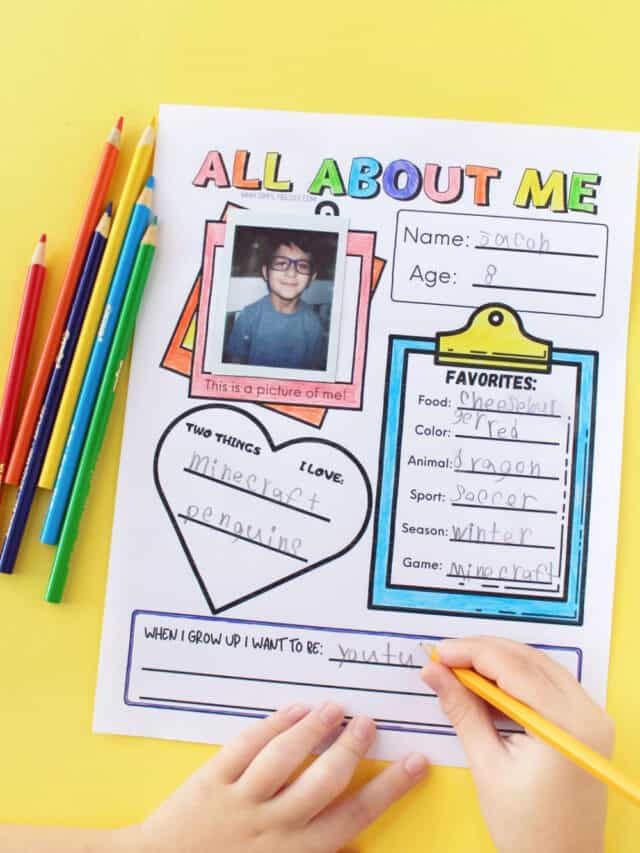 ALL ABOUT ME
Name: Jacob
Age: 8
This is a picture of me!
FAVORITES:
Food: Cheesebur
ger
Color: red
Animal: dragon
Sport: Soccer
Season: winter
Game: Minecraft
TWO THINGS I LOVE:
minecraft
penguins
WHEN I GROW UP I WANT TO BE: youtu